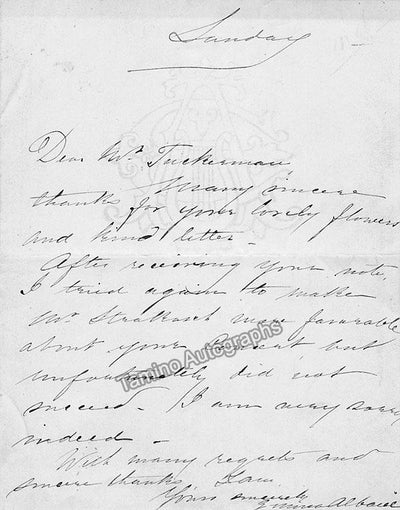 Sunday
Dear Mrs. Tuckerman
Many sincere
thanks for your lovely flowers
and kind letter -
After receiving your note,
I tried again to make
Mr Strakosch more favorable
about your but
unfortunately did not
succeed - I am very sorry
indeed -
With many regrets and
sincere thanks I am
Yours sincerely
Emma Albani
Tamino Autographs